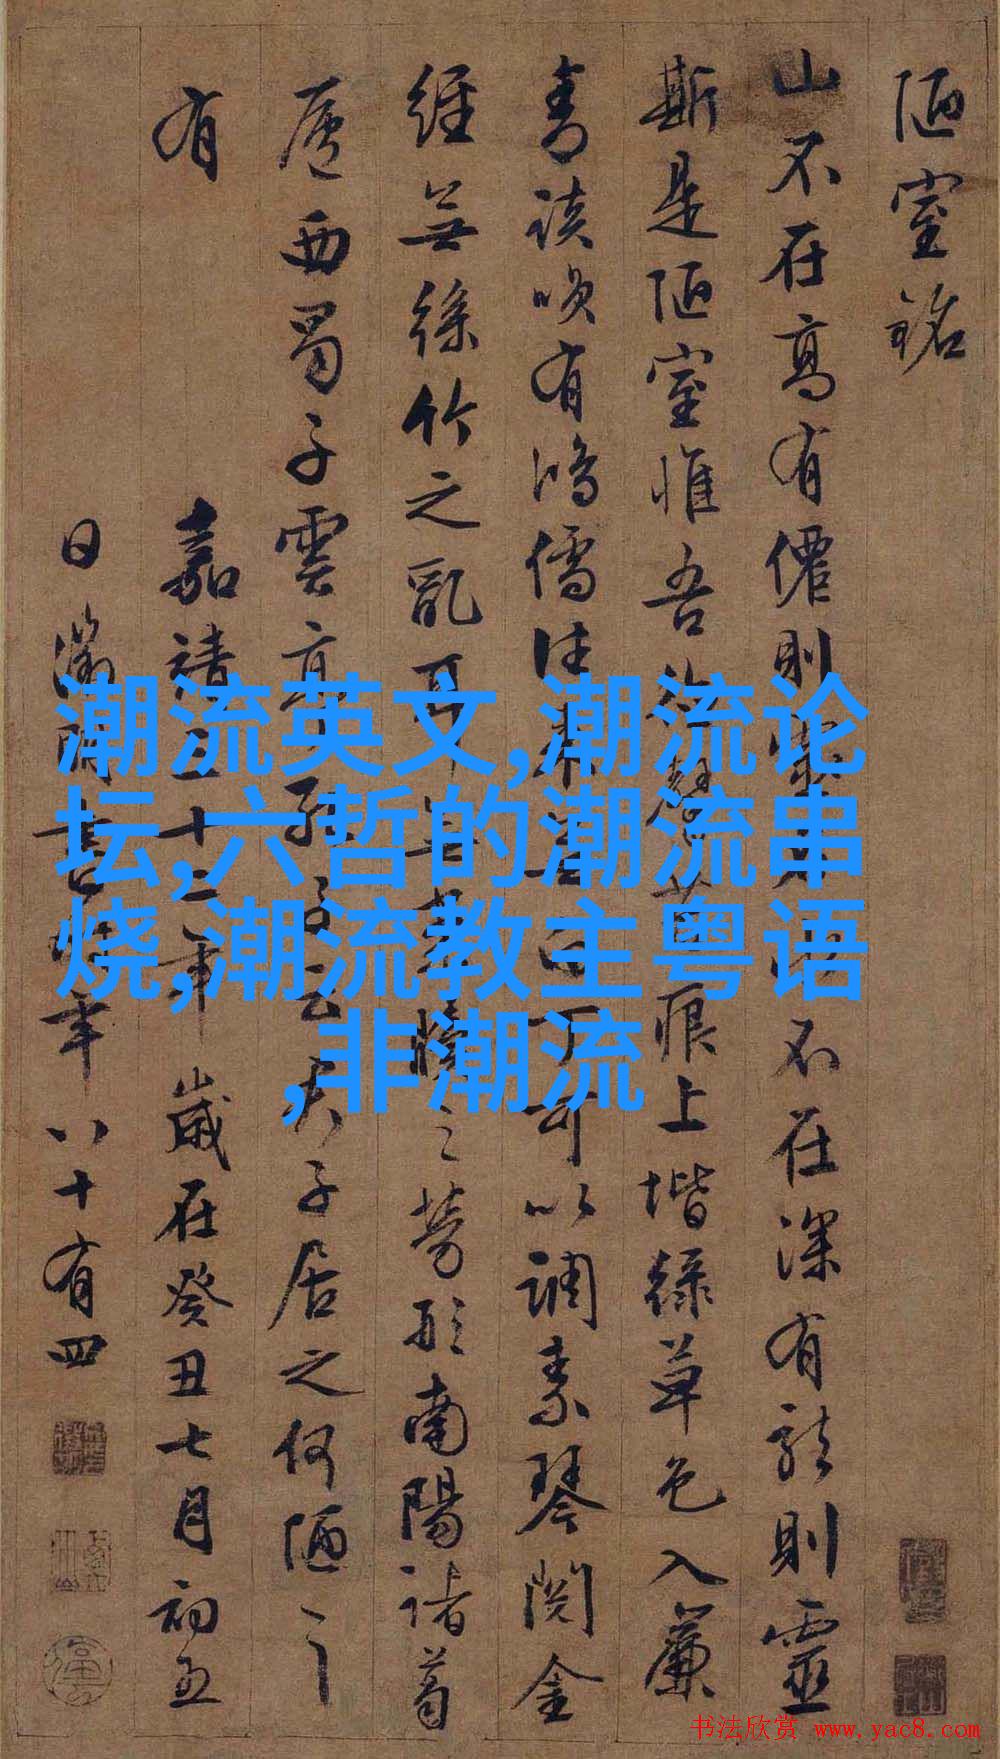 陋室銘
山不在高有僊則不在深有龍則靈
斯是陋室惟吾馨苔痕上堦綠草色入簾
青談咲有鴻儒往來白丁可以調素琴閱金
經無絲竹之亂耳無案牘之勞形南陽諸葛
廬西蜀子雲亭孔子云君子居之何陋之
有
嘉靖三十二年歲在癸丑七月初五
日徵明書時年八十有四
潮流英文,潮流论
坛,六哲的潮流串
烧,潮流教主粤语
,非潮流
书法欣赏 www.yac8.com